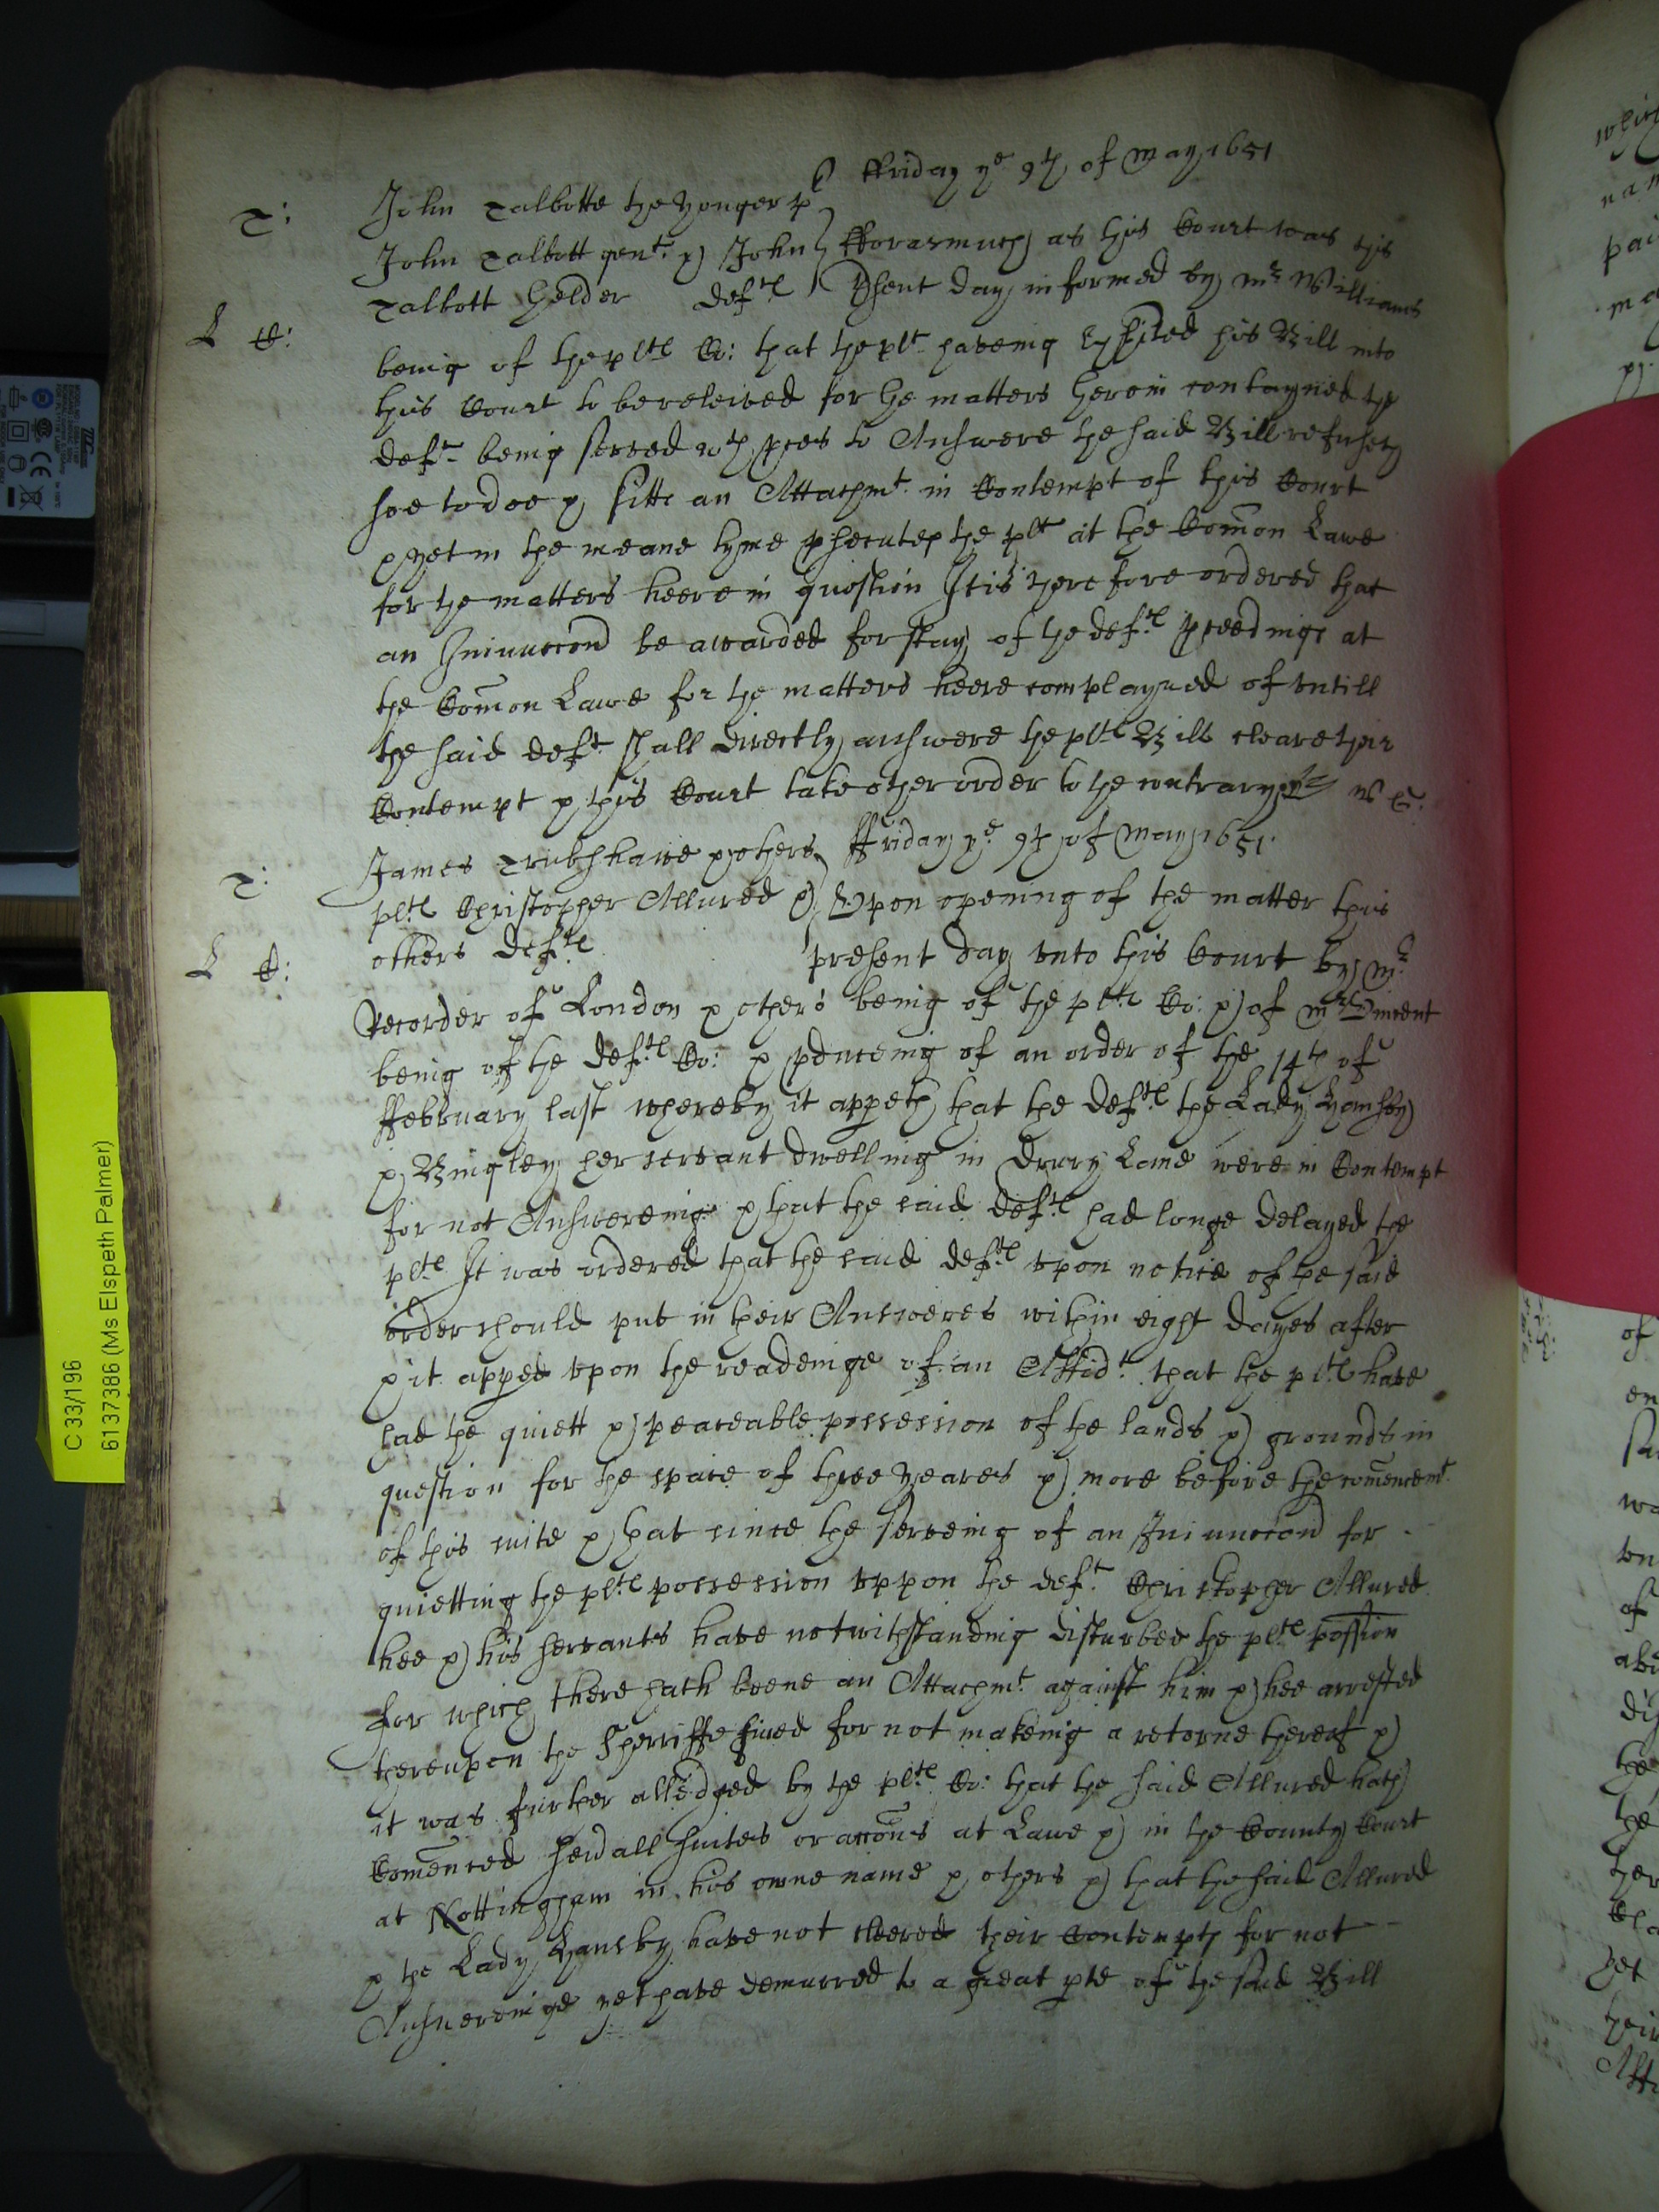 ffriday ye 9th of May 1651
T: John Talbotte the yonger plt
John Talbott gent & John fforasmuch as this Court was this
Talbott thelder deftes psent day informed by Mr Williams
L C: being of the pltes Co: that the plt haveing Exhited his Bill into
this Court to bereleived for the matters therein contayned the
deft being served wth pces to Answere the said Bill refuseth
soe to doe & sitts an Attachmt in Contempt of this Court
& yet in the meane tyme psecuteth the plt at the Comon Lawe
for the matters heere in question It is therefore ordered that
an Iniunccon be awarded for stay of the deftes pceedings at
the Comon Lawe for the matters heere complayned of untill
the said deft shall directly answere the pltes Bill cleare their
Contempt & this Court take other order to the contrary
T: James Trubshawe & others ffriday ye 9th of May 1651.
pltes Christopher Allured & Upon opening of the matter this
others deftes present day unto this Court by Mr
L C:
Recorder of London & others being of the pltes Co: & of Mr Vincent
being of the deftes Co: & pduceing of an order of the 14th of
ffebruary last whereby it appeth that the deftes the Lady Hansby
& Bingley her servant dwelling in Drury Lane were in Contempt
for not Answereinge & that the said deftes had longe delayed the
pltes It was ordered that the said deftes upon notice of the said
order should put in their Answeres within eight dayes after
& it apped upon the readeinge of an Affidt that the pltes have
had the quiett & peaceable possession of the lands & grounds in
question for the space of three yeares & more before the comencemt
of this suite & that since the serveing of an Iniunccon for
quietting the pltes possession uppon the deft Christopher Allured
hee & his servants have notwithstanding disturbed the pltes possion
for which there hath beene an Attachmt against him & hee arrested
thereupon the Sherriffe fined for not makeing a retorne thereof &
it was further alledged by the pltes Co: that the said Allured hath
Comenced sevrall suites or accons at Lawe & in the County Court
at Nottingham in his owne name & others & that the said Allured
& the Lady Hansby have not cleered their Contempts for not
Answereinge yet have demurred to a great pte of the said Bill
C 33/196
61373786 (Ms Elspeth Palmer)